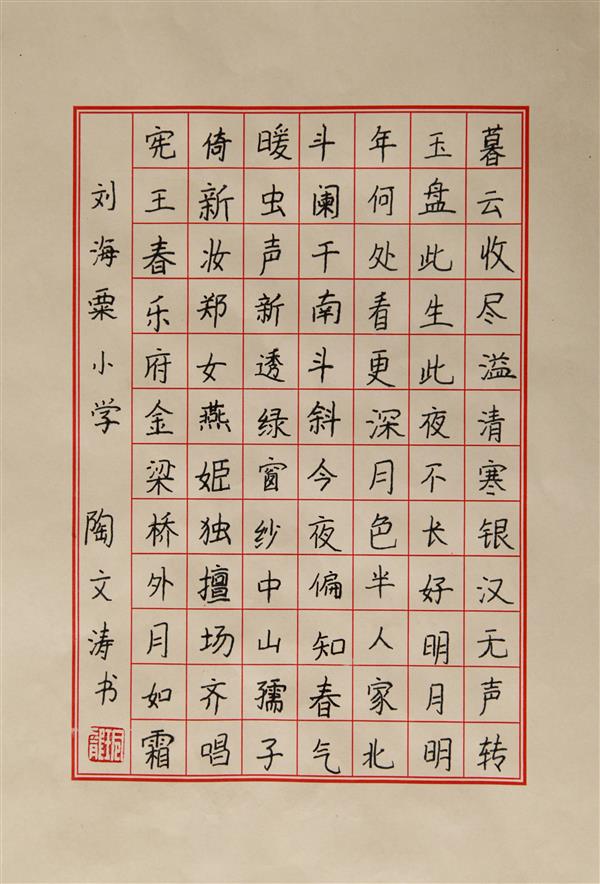 暮云收尽溢清寒银汉无声转
玉盘此生此夜不长好明月明
年何处看更深月色半人家北
斗阑干南斗斜今夜偏知春气
暖虫声新透绿窗纱中山孺子
倚新妆郑女燕姬独擅场齐唱
宪王春乐府金梁桥外月如霜
刘海粟小学 陶文涛书